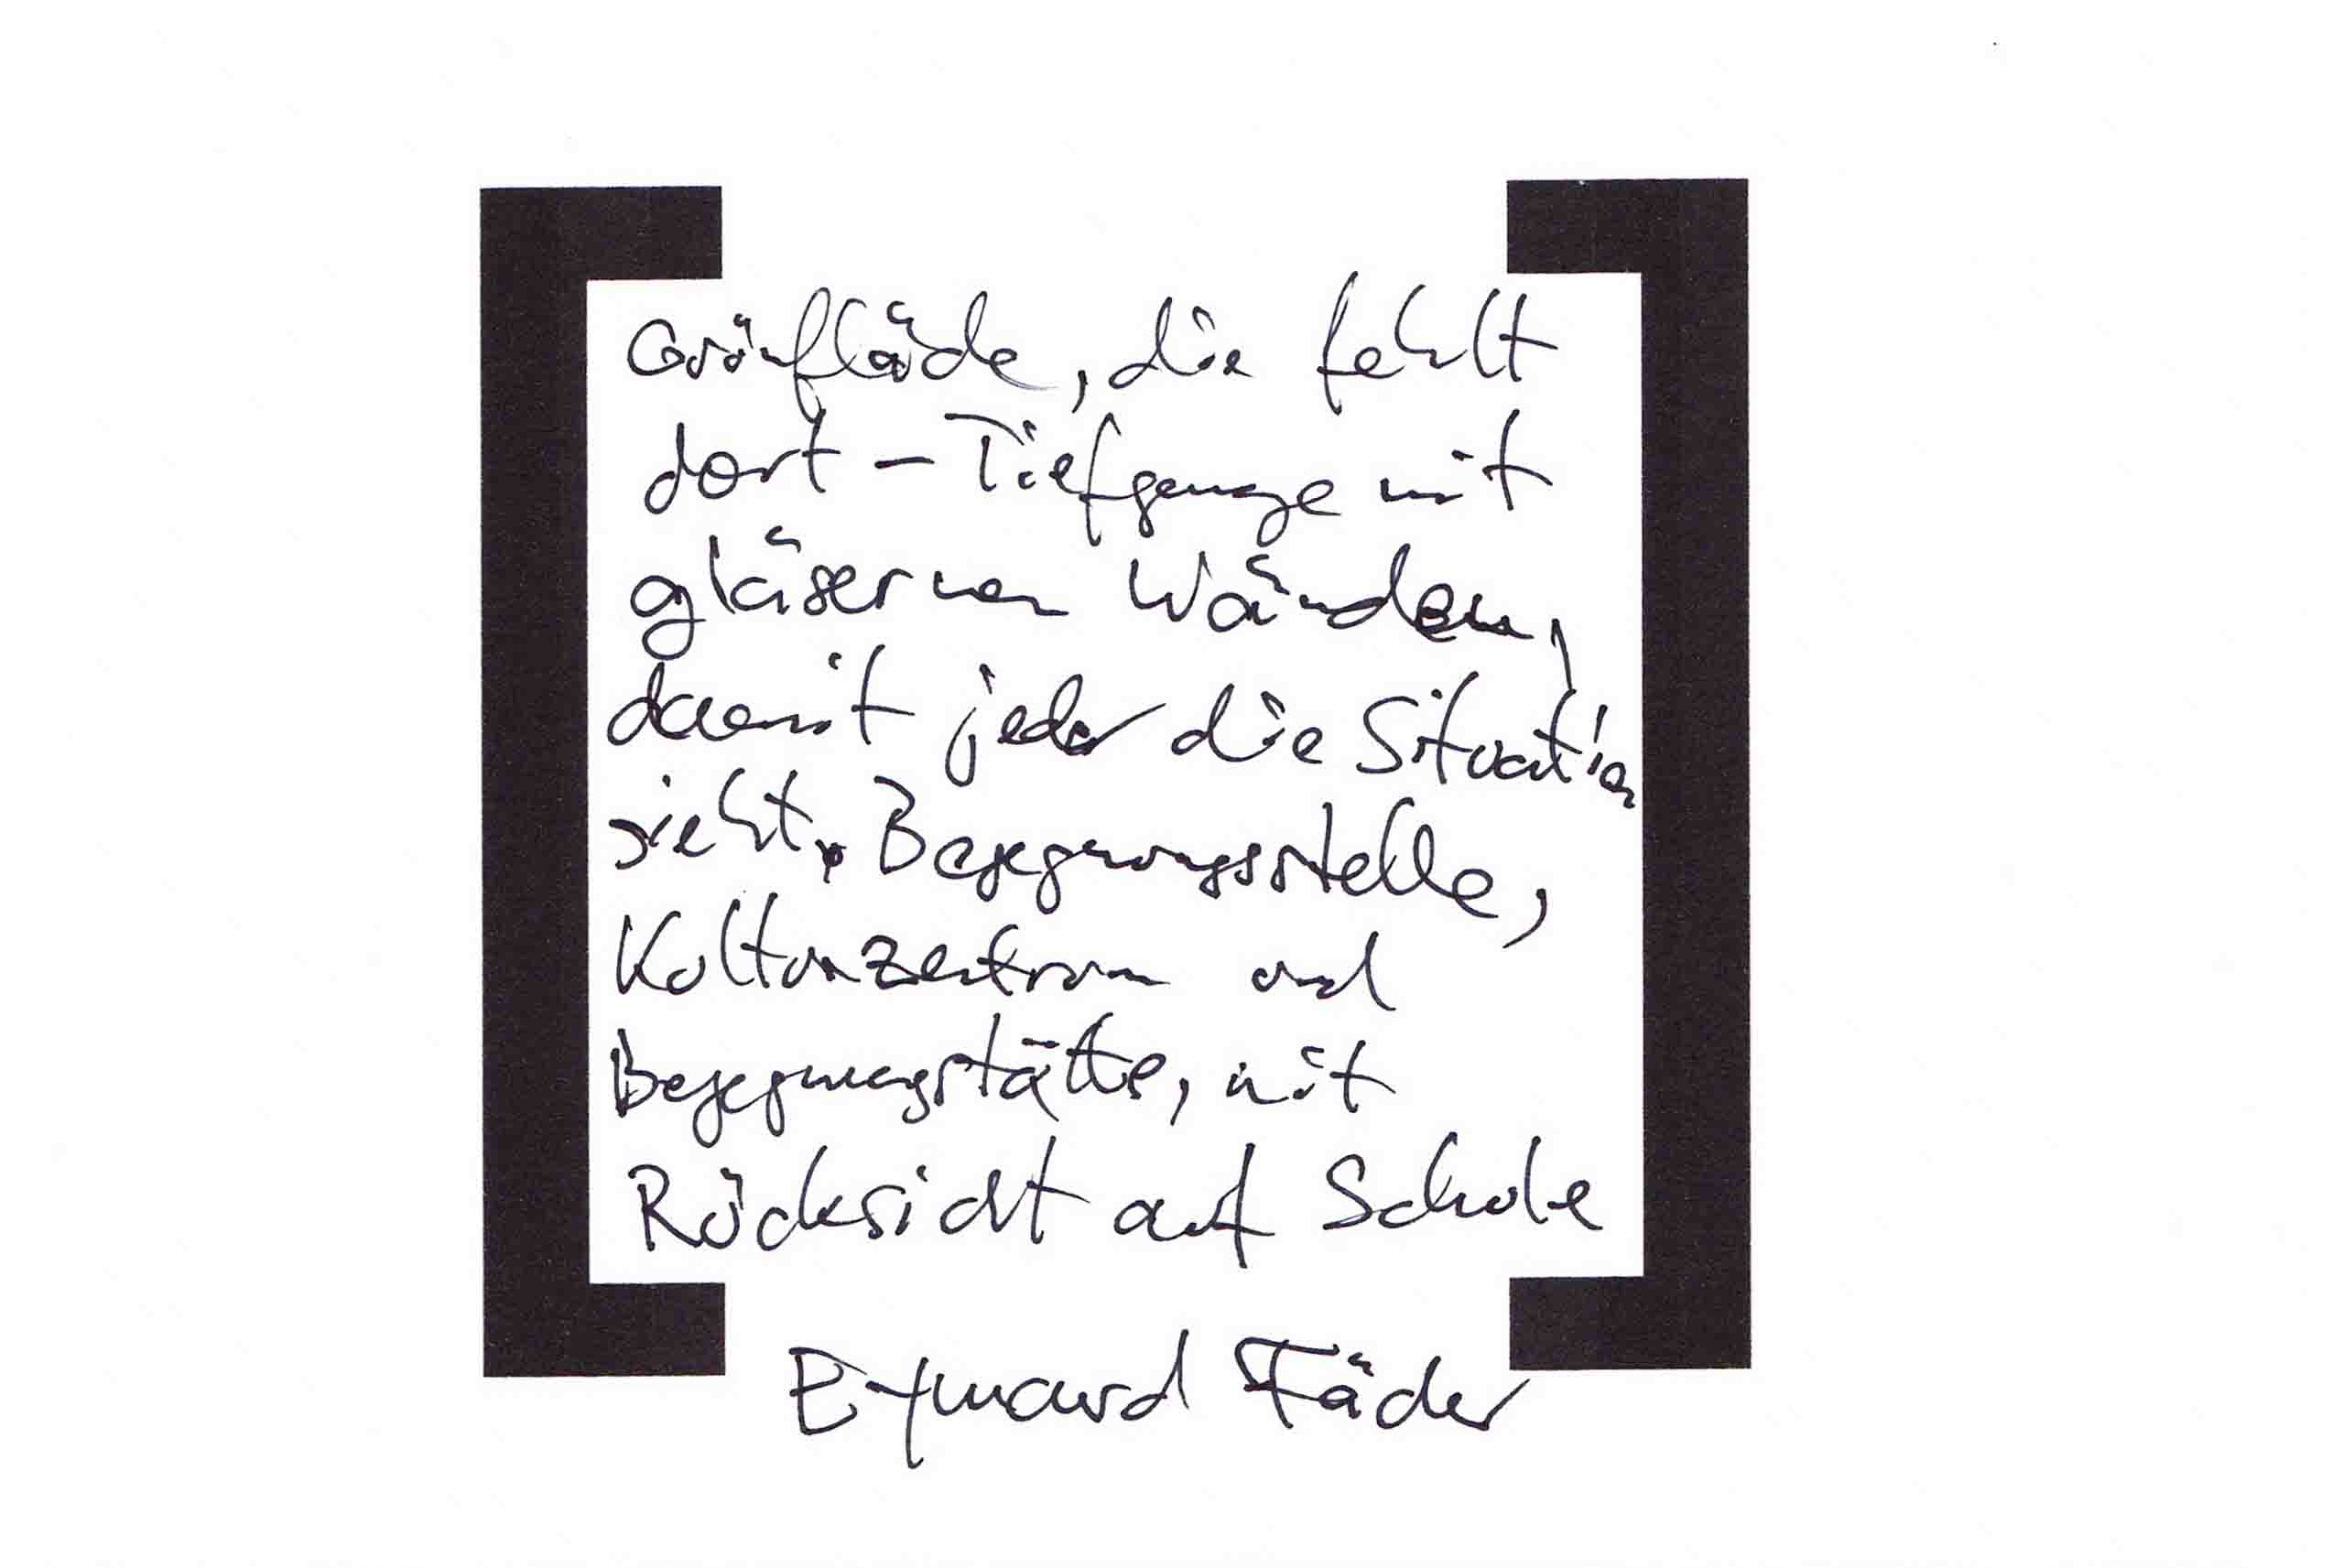 Grünfläche, die fehlt
dort – Tiefgarage mit
gläsernen Wänden,
damit jeder die Situation
sieht. Begegnungsstelle,
Kulturzentrum und
Begegnungstätte, mit
Rücksicht auf Schule
Eymard Fäder